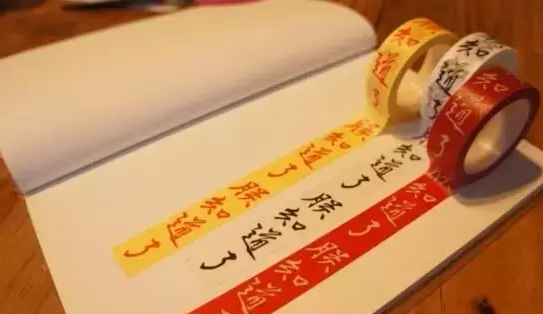 知道了朕知道了朕知道了
知道了知道了朕知道了
知道了知道了朕知道了